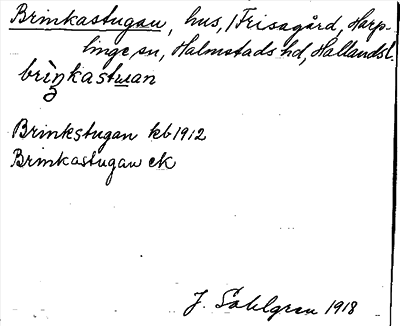 Brinkastugan, hus, /Frisagård, Harp-
linge sn, Halmstads hd, Hallands l.
brìŋkastɯan
Brinkstugan kb 1912
Brinkastugan ek
J. Sahlgren 1918